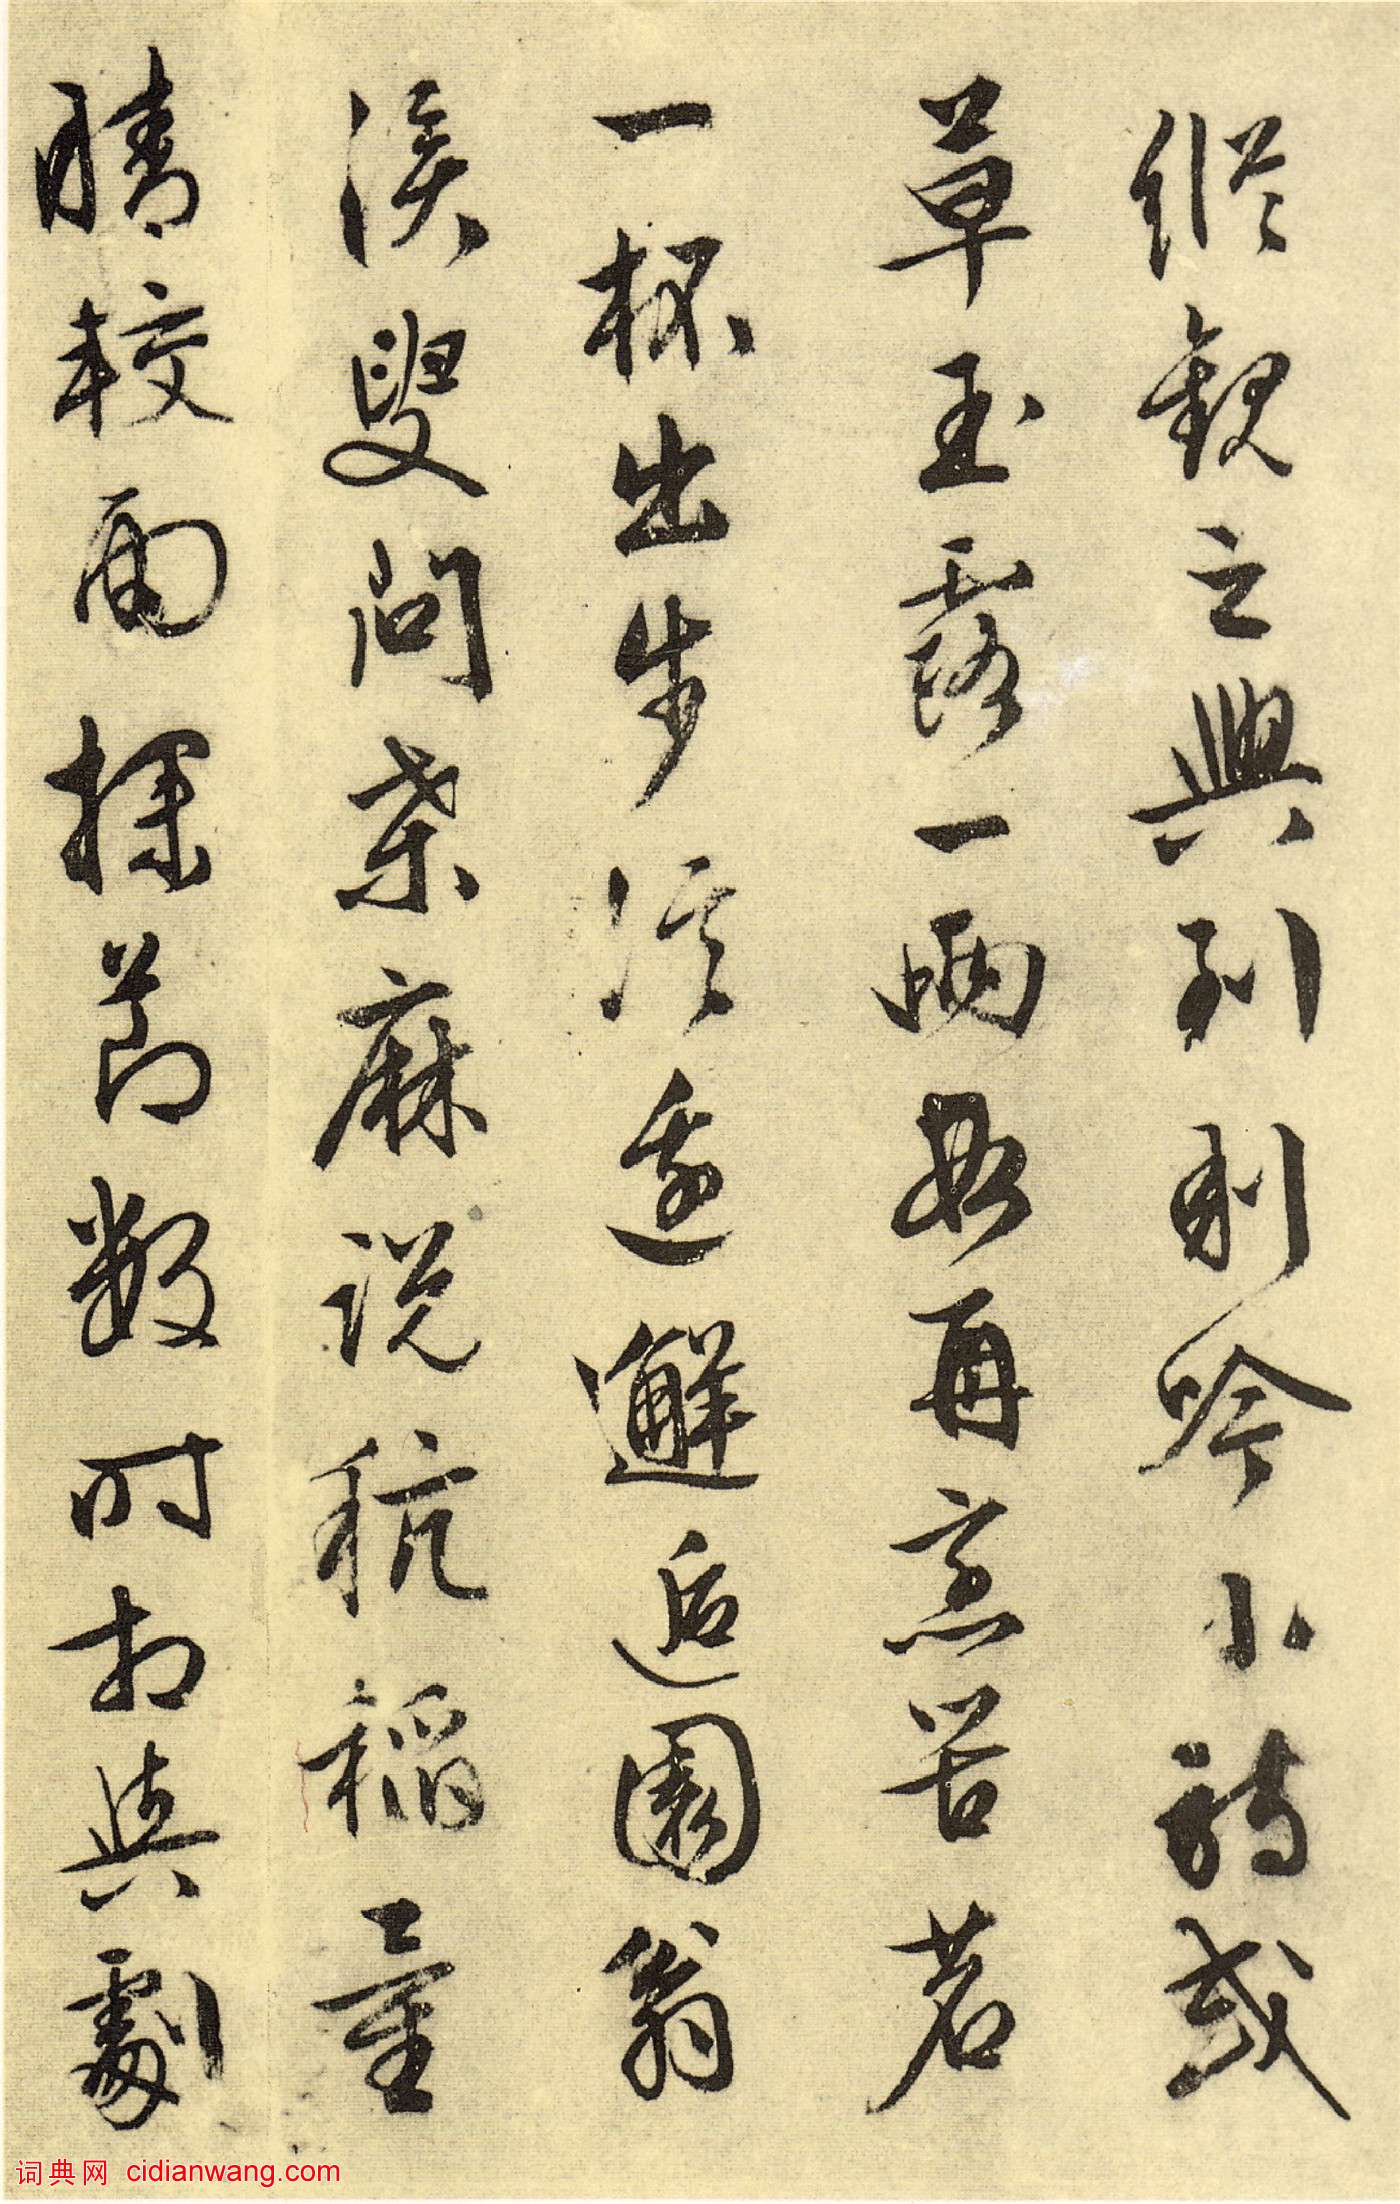 纵观之興到則吟小詩或
草玉露一兩段再烹苦茗
一杯出步溪邊邂逅園翁
溪叟問桑麻説秔稻量
晴較雨探節數時相與劇
词典网 cidianwang.com